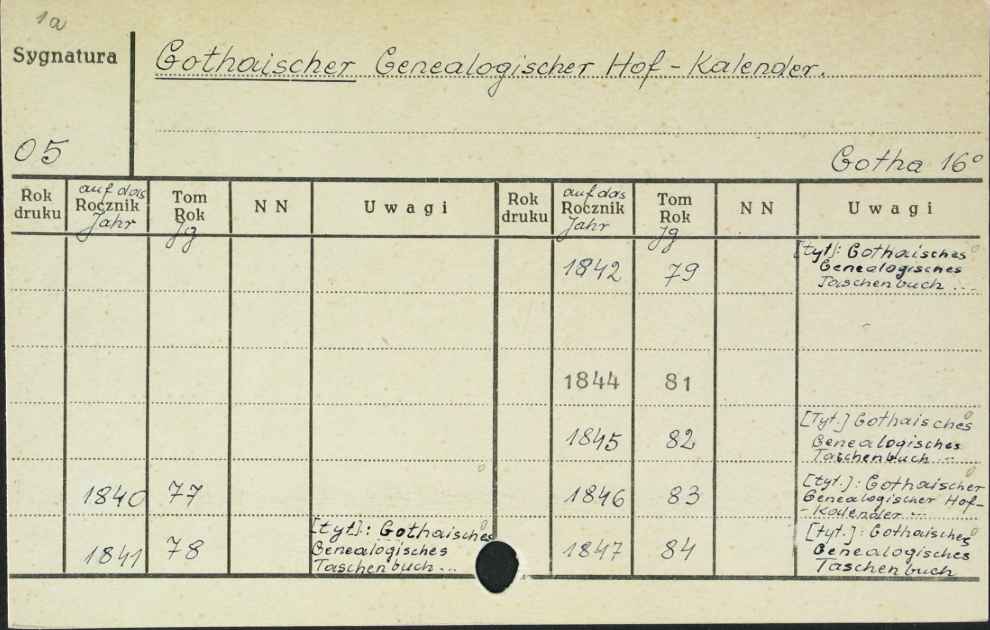 1a
Sygnatura
Gothaischer Genealogischer Hof-Kalender.
05
Gotha 16°
Rok druku
auf das
Rocznik
Jahr
Tom
Rok
Jg
N N
Uwagi
Rok druku
auf das
Rocznik
Jahr
Tom
Rok
Jg
N N
Uwagi
1842 79 [tyt]: Gothaisches
Genealogisches
Taschenbuch ...
1844 81
1845 82 [Tyt.] Gothaisches
Genealogisches
Taschenbuch ...
1840 77
1846 83 [tyt.]: Gothaischer
Genealogischer Hof-
-Kalender ...
1841 78 [tyt]: Gothaisches
Genealogisches
Taschenbuch ...
1847 84 [tyt.]: Gothaisches
Genealogisches
Taschenbuch